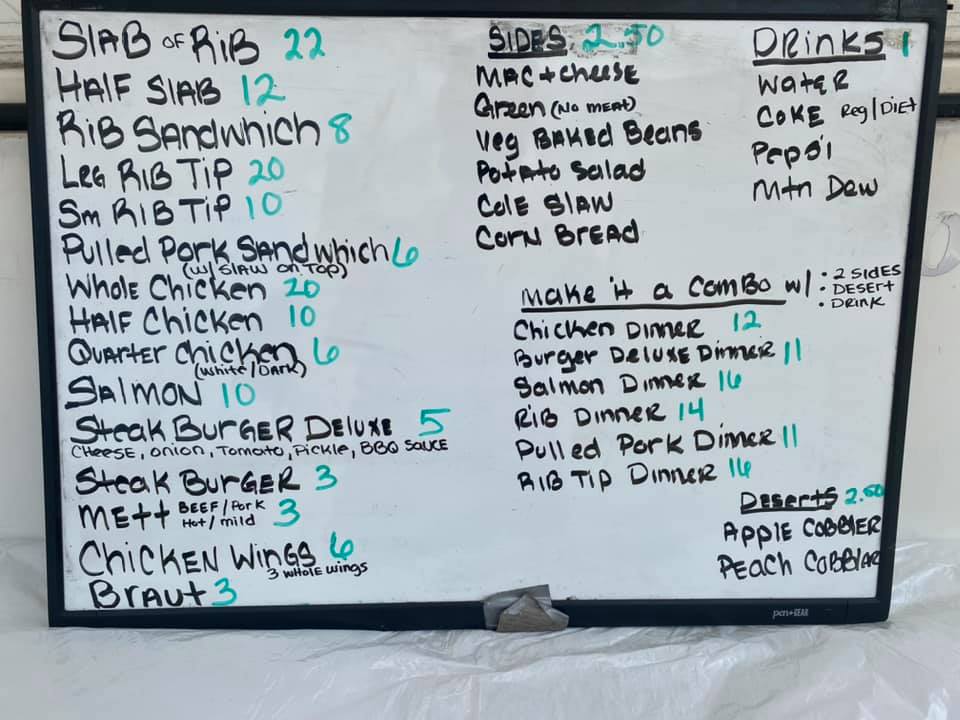 SLAB OF RIB 22
HALF SLAB 12
RIB SANDWHICH 8
LRG RIB TIP 20
SM RIB TIP 10
PULLED PORK SANDWHICH 6
(W/ SLAW ON TOP)
WHOLE CHICKEN 20
HALF CHICKEN 10
QUARTER CHICKEN 6
(WHITE/DARK)
SALMON 10
STEAK BURGER DELUXE 5
CHEESE, ONION, TOMATO, PICKLE, BBQ SAUCE
STEAK BURGER 3
METT BEEF/PORK 3
HOT/MILD
CHICKEN WINGS 6
3 WHOLE WINGS
BRAUT 3
SIDES 2.50
MAC + CHEESE
GREEN (NO MEAT)
VEG BAKED BEANS
POTATO SALAD
COLE SLAW
CORN BREAD
DRINKS 1
WATER
COKE REG/DIET
PEPSI
MTN DEW
MAKE IT A COMBO W/
• 2 SIDES
• DESERT
• DRINK
CHICKEN DINNER 12
BURGER DELUXE DINNER 11
SALMON DINNER 16
RIB DINNER 14
PULLED PORK DINNER 11
RIB TIP DINNER 16
DESERTS 2.50
APPLE COBBLER
PEACH COBBLAR
pen+GEAR